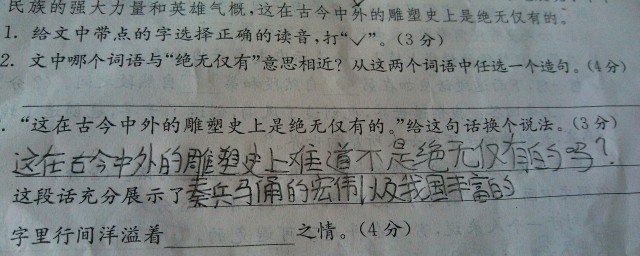 民族的强大力量和英雄气概，这在古今中外的雕塑史上是绝无仅有的。
1. 给文中带点的字选择正确的读音，打“✓”。（3 分）
2. 文中哪个词语与“绝无仅有”意思相近？从这两个词语中任选一个造句。（4 分）
. “这在古今中外的雕塑史上是绝无仅有的。”给这句话换个说法。（3 分）
这在古今中外的雕塑史上难道不是绝无仅有的吗？
这段话充分展示了秦兵马俑的宏伟，以及我国丰富的
字里行间洋溢着 之情。（4 分）